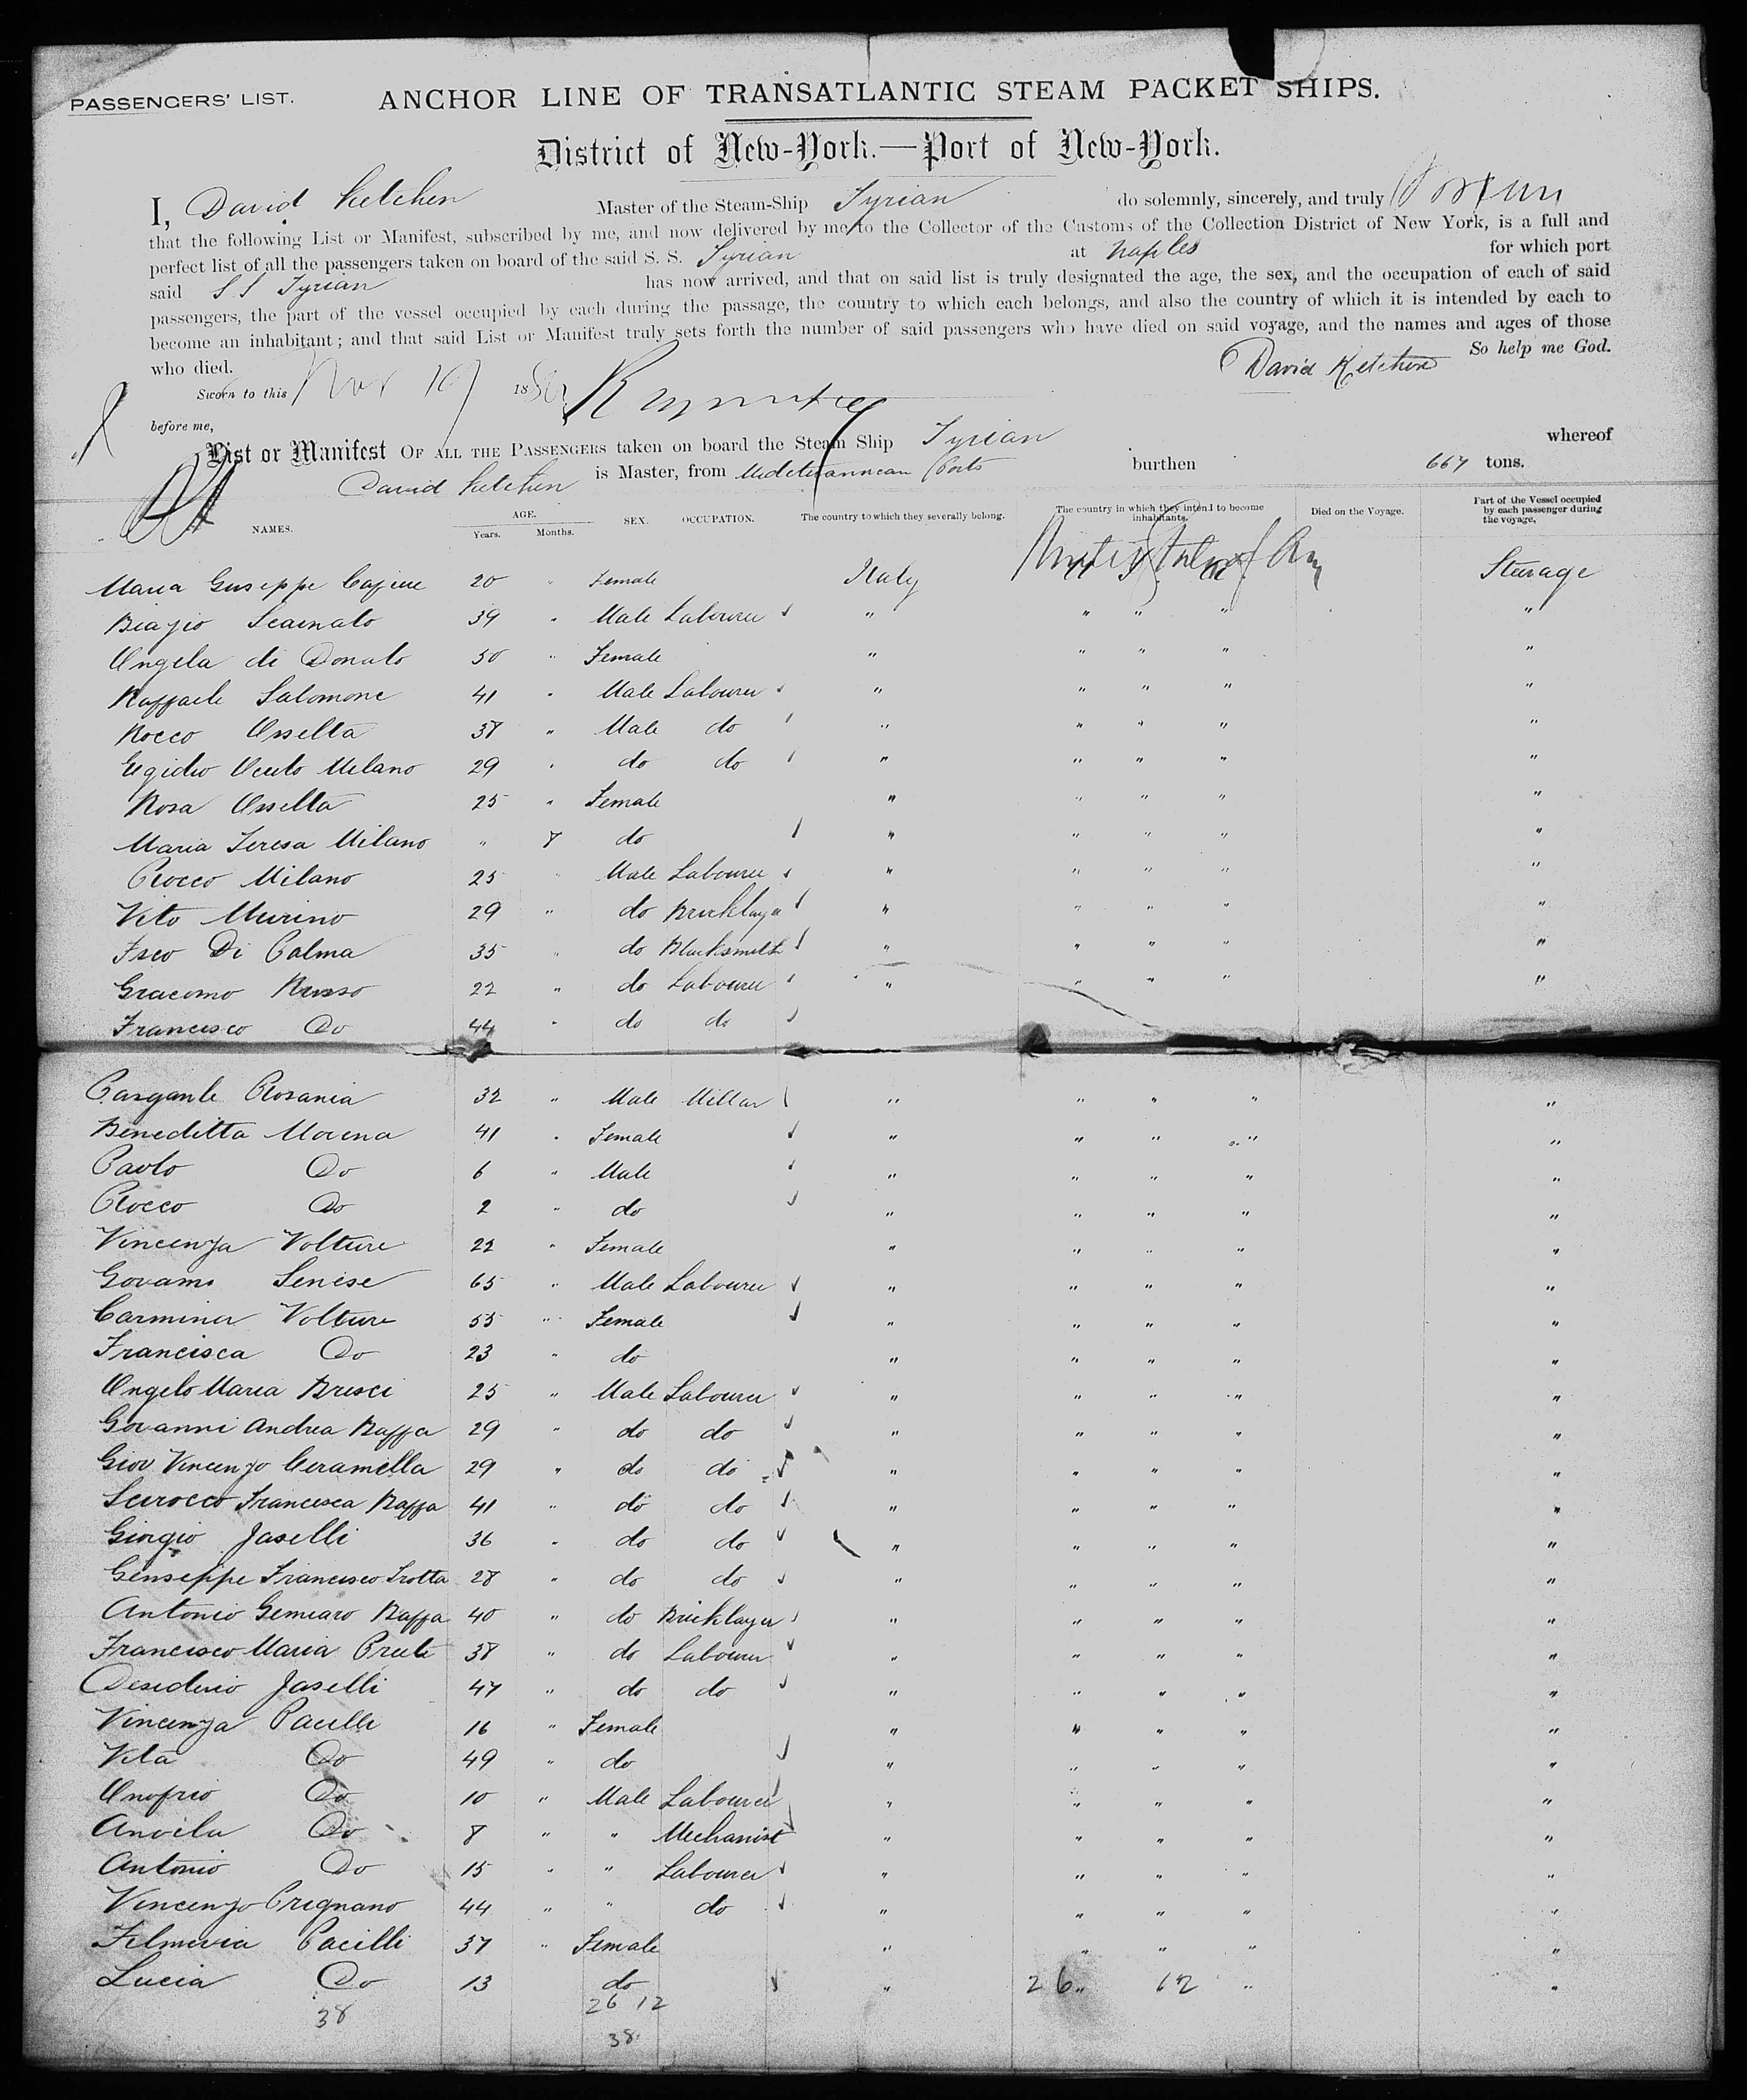 PASSENGERS' LIST. ANCHOR LINE OF TRANSATLANTIC STEAM PACKET SHIPS.
District of New-York.—Port of New-York.
I, David Ketchen Master of the Steam-Ship Syrian do solemnly, sincerely, and truly
that the following List or Manifest, subscribed by me, and now delivered by me to the Collector of the Customs of the Collection District of New York, is a full and
perfect list of all the passengers taken on board of the said S. S. Syrian at Naples for which port
said S S Syrian has now arrived, and that on said list is truly designated the age, the sex, and the occupation of each of said
passengers, the part of the vessel occupied by each during the passage, the country to which each belongs, and also the country of which it is intended by each to
become an inhabitant; and that said List or Manifest truly sets forth the number of said passengers who have died on said voyage, and the names and ages of those
who died. So help me God.
David Ketchen
Sworn to this Nov 18
before me,
List or Manifest OF ALL THE PASSENGERS taken on board the Steam Ship Syrian whereof
David Ketchen is Master, from Mediterannean Ports burthen 667 tons.
NAMES. AGE. Years. Months. SEX. OCCUPATION. The country to which they severally belong. The country in which they intend to become inhabitants. Died on the Voyage. Part of the Vessel occupied by each passenger during the voyage.
Maria Guseppe 20 " Female Italy United States of Am Steerage
Biagio Scainato 39 " Male Labourer " " " " "
Angela di Donato 50 " Female " " " " "
Raffaele Salomone 41 " Male Labourer " " " " "
Rocco Asselta 38 " Male do " " " " "
Egidio Milano 29 " do do " " " " "
Rosa Asselta 25 " Female " " " " "
Maria Teresa Milano " 8 do " " " " "
Rocco Milano 25 " Male Labourer " " " " "
Vito Murino 29 " do Bricklayer " " " " "
Fsco Di Palma 35 " do Blacksmith " " " " "
Giacomo Russo 22 " do Labourer " " " " "
Francisco Do 44 " do do
Pasquale Rosania 32 " Male Millar " " " " "
Beneditta Morena 41 " Female " " " " "
Paolo Do 6 " Male " " " " "
Rocco Do 2 " do " " " " "
Vincenza Volture 22 " Female " " " " "
Govami Senese 65 " Male Labourer " " " " "
Carmina Volture 55 " Female " " " " "
Francisca Do 23 " do " " " " "
Angelo Maria Brisci 25 " Male Labourer " " " " "
Govanni Andrea Raffa 29 " do do " " " " "
Giov Vincenzo Ceramella 29 " do do " " " " "
Scirocco Francesca Raffa 41 " do do " " " " "
Giorgio Jaselli 36 " do do " " " " "
Genseppe Francisco Trotta 28 " do do " " " " "
Antonio Gemiaro Raffa 40 " do Bricklayer " " " " "
Francisco Maria Prete 38 " do Labourer " " " " "
Desiderio Jaselli 47 " do do " " " " "
Vincenza Pacilli 16 " Female " " " " "
Vita Do 49 " do " " " " "
Onofrio Do 10 " Male Labourer " " " " "
Do 8 " " Mechanist " " " " "
Antonio Do 15 " " Labourer " " " " "
Vincenzo Prignano 44 " " do " " " " "
Filmeria Pacilli 37 " Female " " " " "
Lucia Do 13 do " 26 " 12 " "
38 26 12
38